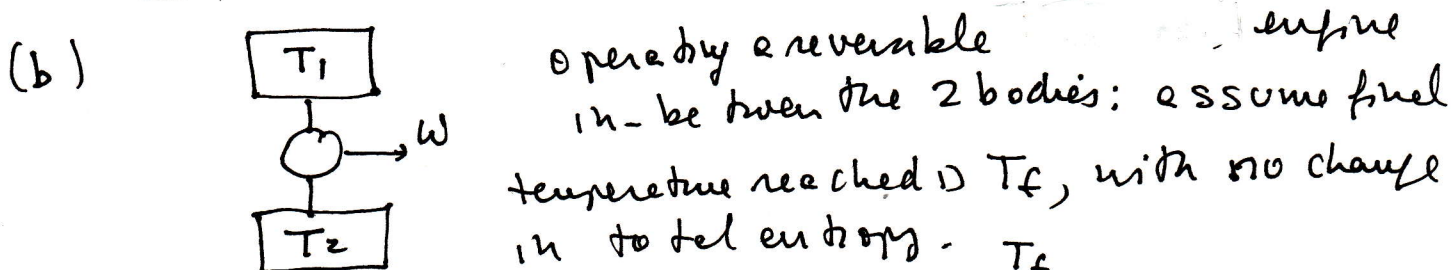 (b) T1 operating a reversible engine
in-between the 2 bodies: assume final
W
temperature reached is Tf, with no change
T2 in total entropy. Tf